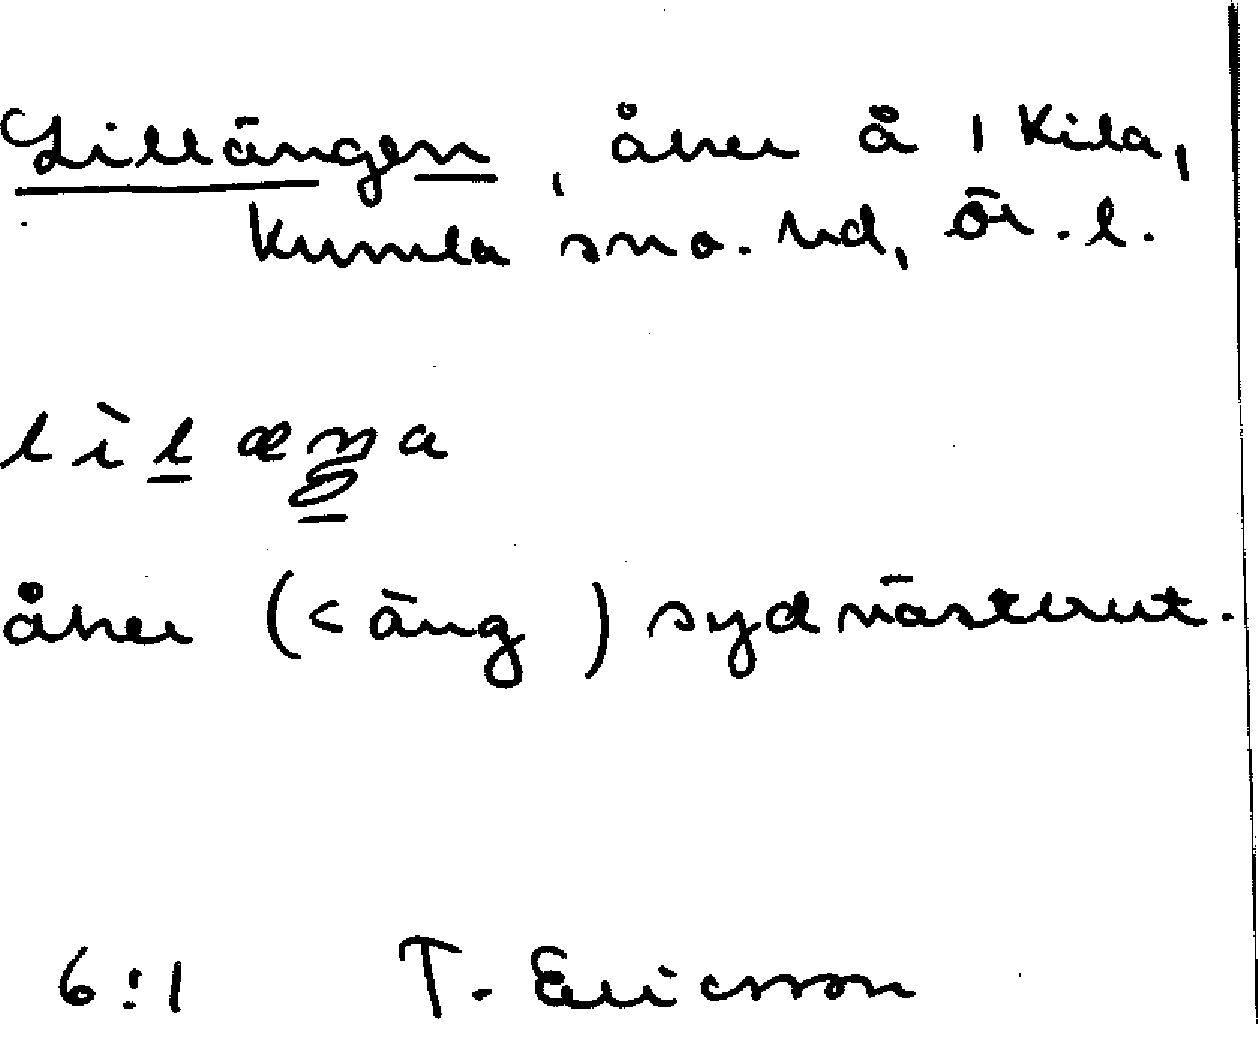 Lillängen, åker å 1 Kila,
Kumla sn o. hd, Ör. l.
lìlæŋa
åker (< äng) sydvästerut.
6:1 T. Ericsson